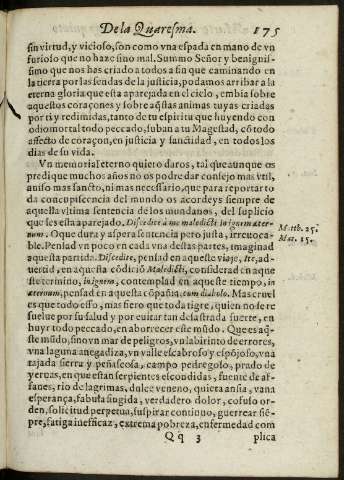 De la Quaresma. 175
sin virtud, y vicioso, son como vna espada en mano de vn
furioso que no haze sino mal. Summo Señor y benignis-
simo que nos has criado a todos a fin que caminando en
la tierra por las sendas de la justicia, podamos arribar a la
eterna gloria que esta aparejada en el cielo, embia sobre
aquestos coraçones y sobre aq̃stas animas tuyas criadas
por ti y redimidas, tanto de tu espiritu que huyendo con
odio mortal todo peccado, suban a tu Magestad, cõ todo
affecto de coraçon, en justicia y sanctidad, en todos los
dias de su vida.
Vn memorial eterno quiero daros, tal que aunque os
predique mucho: años no os podre dar consejo mas vtil,
auiso mas sancto, ni mas necessario, que para reportar to
da concupiscencia del mundo os acordeys siempre de
aquella vltima sentencia de los mundanos, del suplicio
que les esta aparejado, Discedite à me maledicti in ignem æter-
num. O que dura y aspera sentencia pero justa, irreuoca-
ble. Pensad vn poco en cada vna destas partes, imaginad
aquesta partida. Discedite, pensad en aqueste viaje, Ite, ad-
uertid, en aquesta cõdiciõ Maledicti, considerad en aque
ste termino, in ignem, contemplad en aqueste tiempo, in
æternum, pensad en aquesta cõpañia cum diabolo. Mas cruel
es que todo esso, mas fiero que todo tigre, quien no se re
suelue por su salud y por euitar tan desastrada suerte, en
huyr todo peccado, en aborrecer este mũdo. Que es aq̃-
ste mũdo, sino vn mar de peligros, vn labirinto de errores,
vna laguna anegadiza, vn valle escabroso y espõjoso, vna
tajada sierra y peñascosa, campo pedregoso, prado de
yeruas, en que estan serpientes escondidas, fuente de af-
fanes, rio de lagrimas, dulce veneno, quieta ansia, vana
esperança, fabula fingida, verdadero dolor, cõfuso or-
den, solicitud perpetua, suspirar continuo, guerrear siẽ-
pre, fatiga inefficaz, extrema pobreza, enfermedad com
Qq 3 plica
Matth. 25.
Mar. 15.